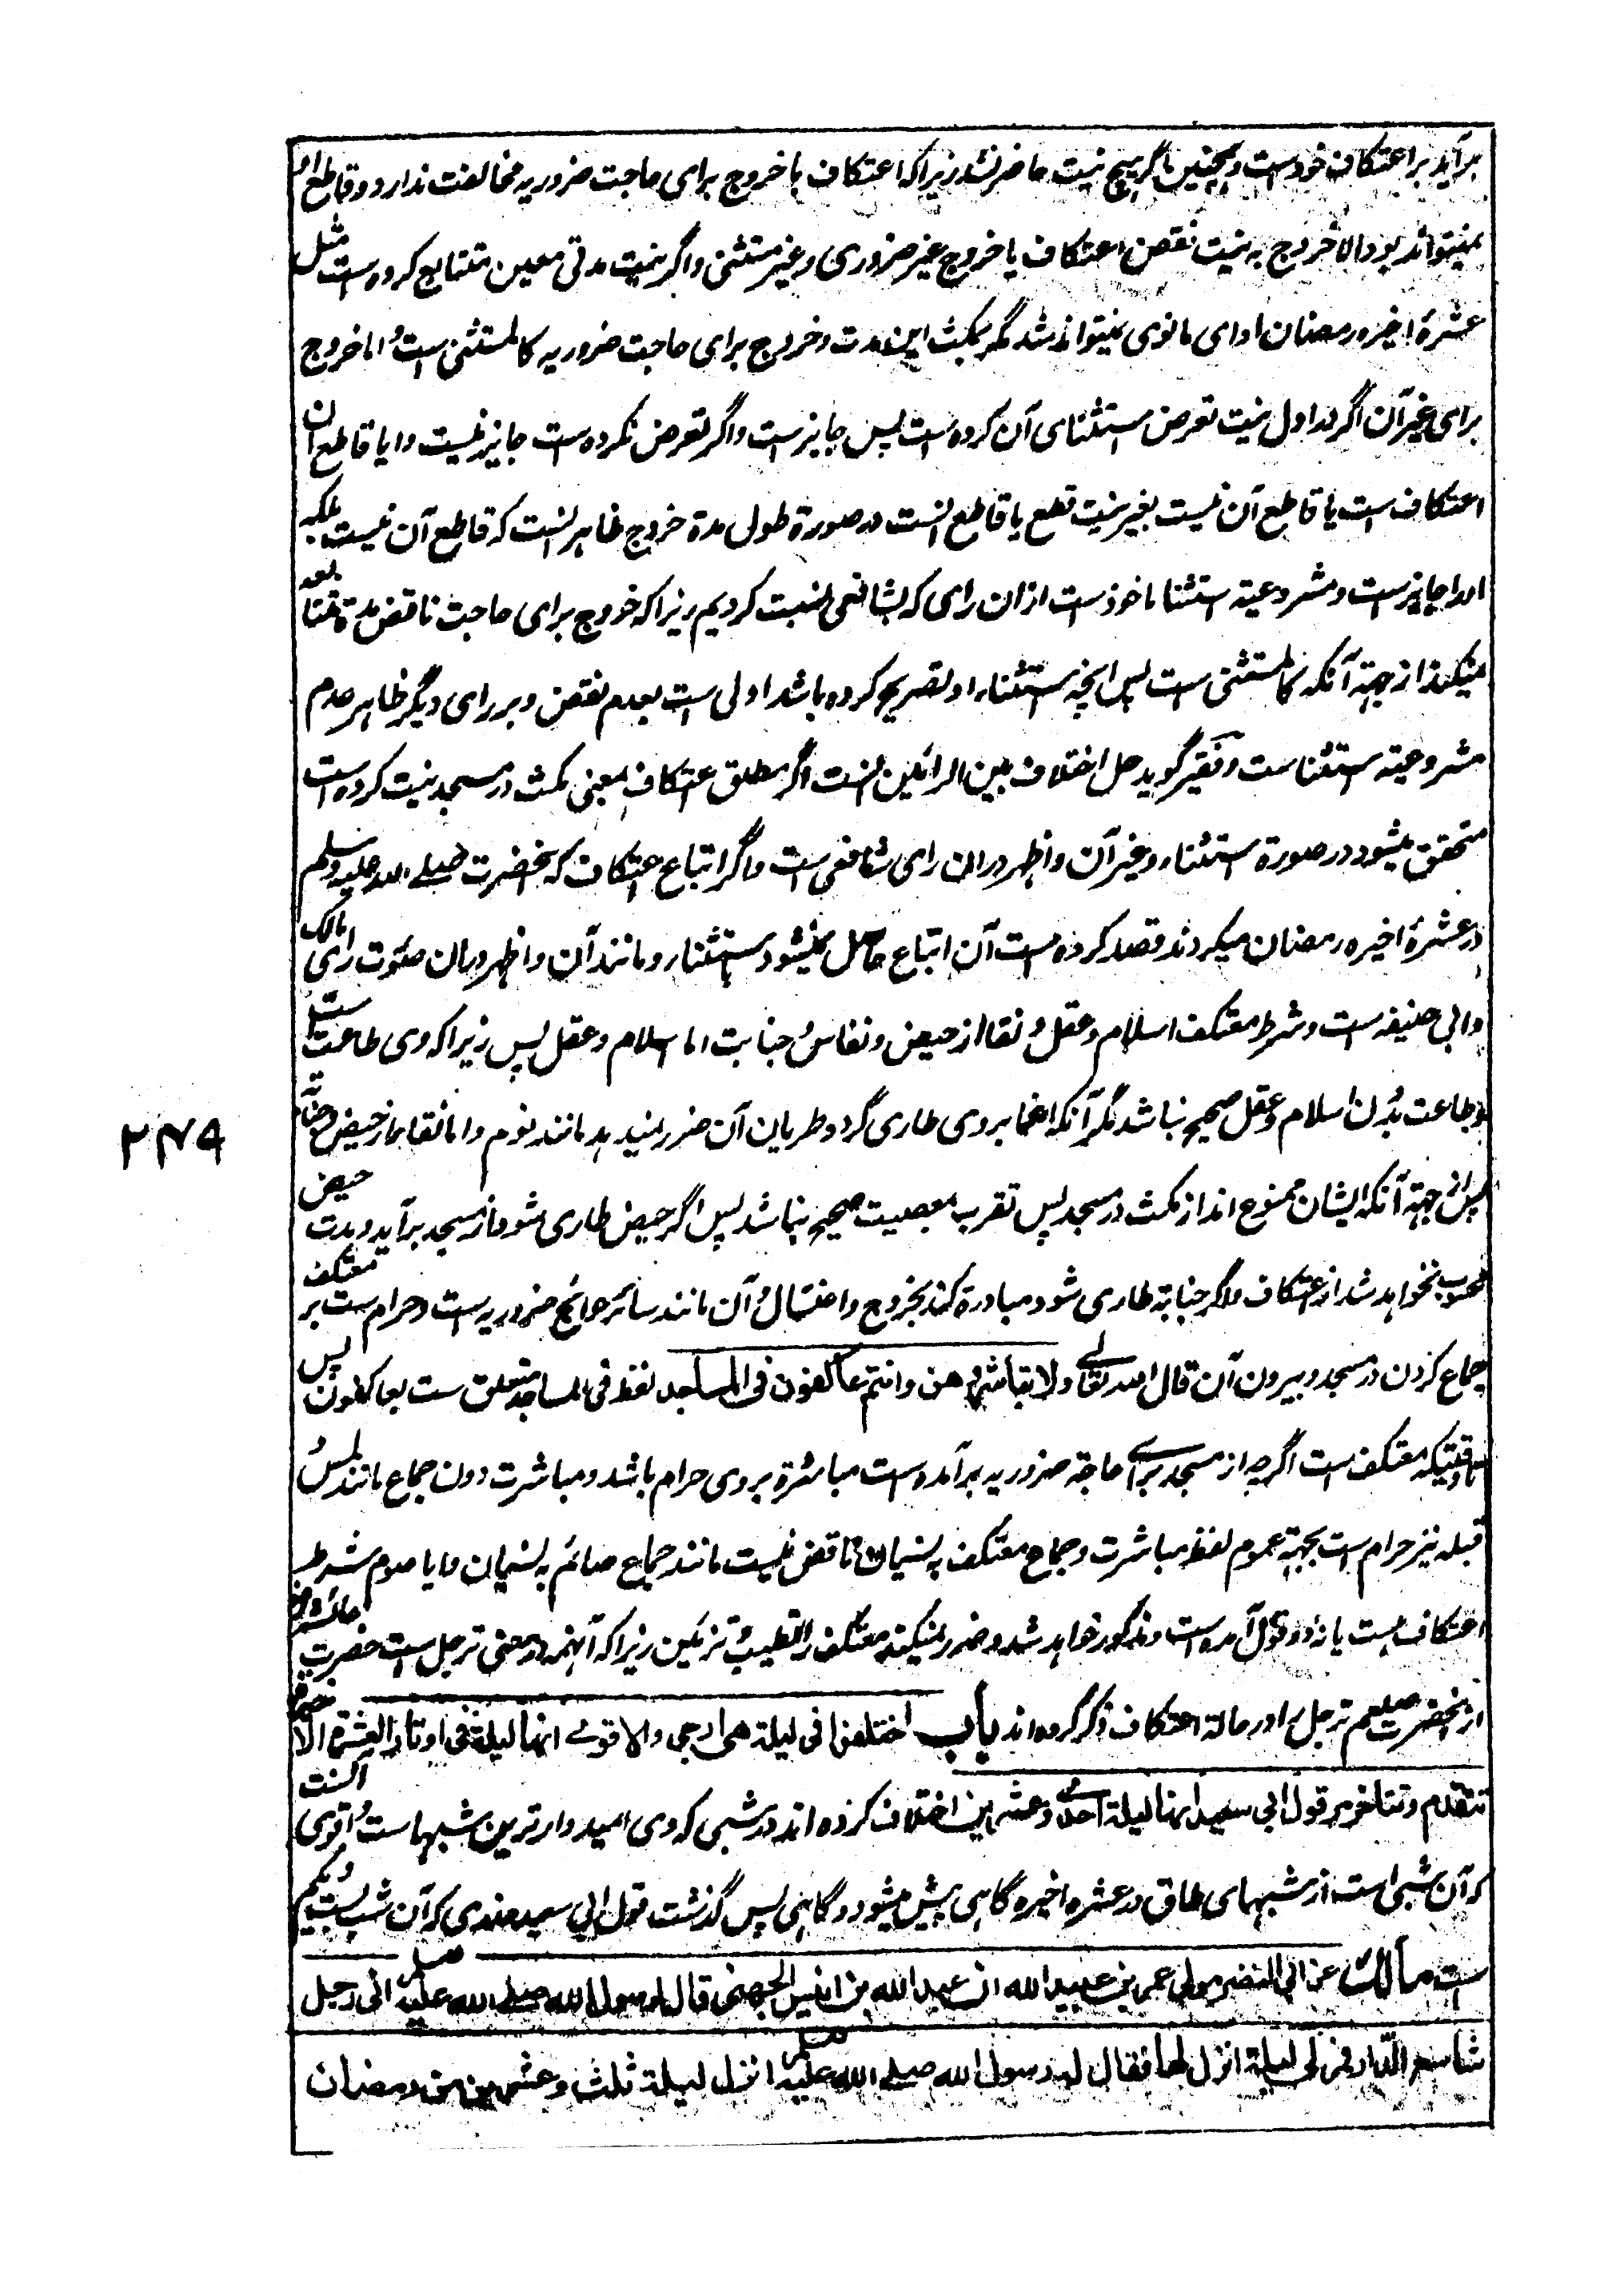 برآید بر اعتکاف خودست و همچنین اگر هیچ نیت حاضر نشد زیرا که اعتکاف با خروج برای حاجت ضروریه مخالفت ندارد و قاطع ان
نمیتواند بود الا خروج به نیت نقض اعتکاف یا خروج غیر ضروری و غیر مستثنی و اگر نیت مدتی معین متتابع کرده ست مثل
عشرهٔ اخیره رمضان ادای مانوی نمیتواند شد مگر بمکث این مدت و خروج برای حاجت ضروریه کالمستثنی ست و اما خروج
برای غیر آن اگر در اول نیت تعرض استثنای آن کرده ست پس جایز ست و اگر تعرض نکرده ست جایز نیست و ایا قاطع ان
اعتکاف ست یا قاطع آن نیست بغیر نیت قطع یا قاطع انست در صورة طول مدة خروج ظاهر انست که قاطع آن نیست بلکه
ابدا جایز ست و مشروعیته استثنا ماخوذ ست ازان رای که بشافعی نسبت کردیم زیرا که خروج برای حاجت ناقض مدة متتابعه
نمیکند از جهة آنکه کالمستثنی ست پس انچه استثناء او تصریح کرده باشد اولی ست بعدم نقض و بر رای دیگر ظاهر عدم
مشروعیته استثناست و فقیر گوید حل اختلاف بین الرائین انست اگر مطلق اعتکاف بمعنی مکث در مسجد نیت کرده ست
متحقق میشود در صورة استثناء و غیر آن و اظهر دران رای شافعی ست و اگر اتباع اعتکاف که آنحضرت صلے الله علیه وسلم
در عشرهٔ اخیره رمضان میکردند قصد کرده ست آن اتباع حاصل نمیشود باستثناء و مانند آن و اظهر دران صورت رای مالک
و ابی حنیفه ست و شرط معتکف اسلام و عقل و نقا از حیض و نفاس و جنابت اما اسلام و عقل پس زیرا که وی طاعت ست
و طاعت بدون اسلام و عقل صحیح نباشد مگر آنکه اغما بر وی طاری گردد و طریان آن ضرر نمیدهد مانند نوم و اما نقا از حیض و جنابت
پس از جهة آنکه ایشان ممنوع اند از مکث در مسجد پس تقرب بمعصیت صحیح نباشد پس اگر حیض طاری شود از مسجد برآید و مدت حیض
محسوب نخواهد شد از اعتکاف و اگر جنابة طاری شود مبادرة کند بخروج و اغتسال و آن مانند سائر حوائج ضروریه ست و حرام ست بر معتکف
جماع کردن در مسجد و بیرون آن قال الله تعالے ولا تباشروهن وانتم عاکفون فی المساجد لفظ فی المساجد متعلق ست بعاکفون پس
تا وقتیکه معتکف ست اگرچه از مسجد برای حاجة ضروریه برآمده ست مباشرة بر وی حرام باشد و مباشرت دون جماع مانند لمس و
قبله نیز حرام ست بجهة عموم لفظ مباشرت و جماع معتکف به نسیان ناقض نیست مانند جماع صائم به نسیان و ایا صوم شرط
اعتکاف هست یا نه دو قول آمده ست و مذکور خواهد شد و ضرر نمیکند معتکف را تطییب و تزئین زیرا که آنهمه در معنی ترجل ست حضرت عائشه رض
از آنحضرت صلعم ترجل را در حالة اعتکاف ذکر کرده اند باب اختلفوا فی لیلة هی ارجی والاقوے انها لیلة فی اوتار العشرة الاخیرة
تتقدم وتتاخر مر قول ابی سعید انها لیلة احدے وعشرین اختلاف کرده اند در شبی که وی امیدوار ترین شبهاست و اقوی آنست
که آن شبی است از شبهای طاق در عشره اخیره گاهی پیش میشود و گاهی پس گذشت قول ابی سعید خدری که آن شب بست و یکم
ست مالک عن ابی النضر مولی عمر بن عبید الله ان عبد الله بن انیس الجهنی قال لرسول الله صلے الله علیه وسلم انی رجل
شاسع الدار فمر لی لیلة انزل لها فقال له رسول الله صلے الله علیه وسلم انزل لیلة ثلث وعشرین من رمضان
۲۷۹